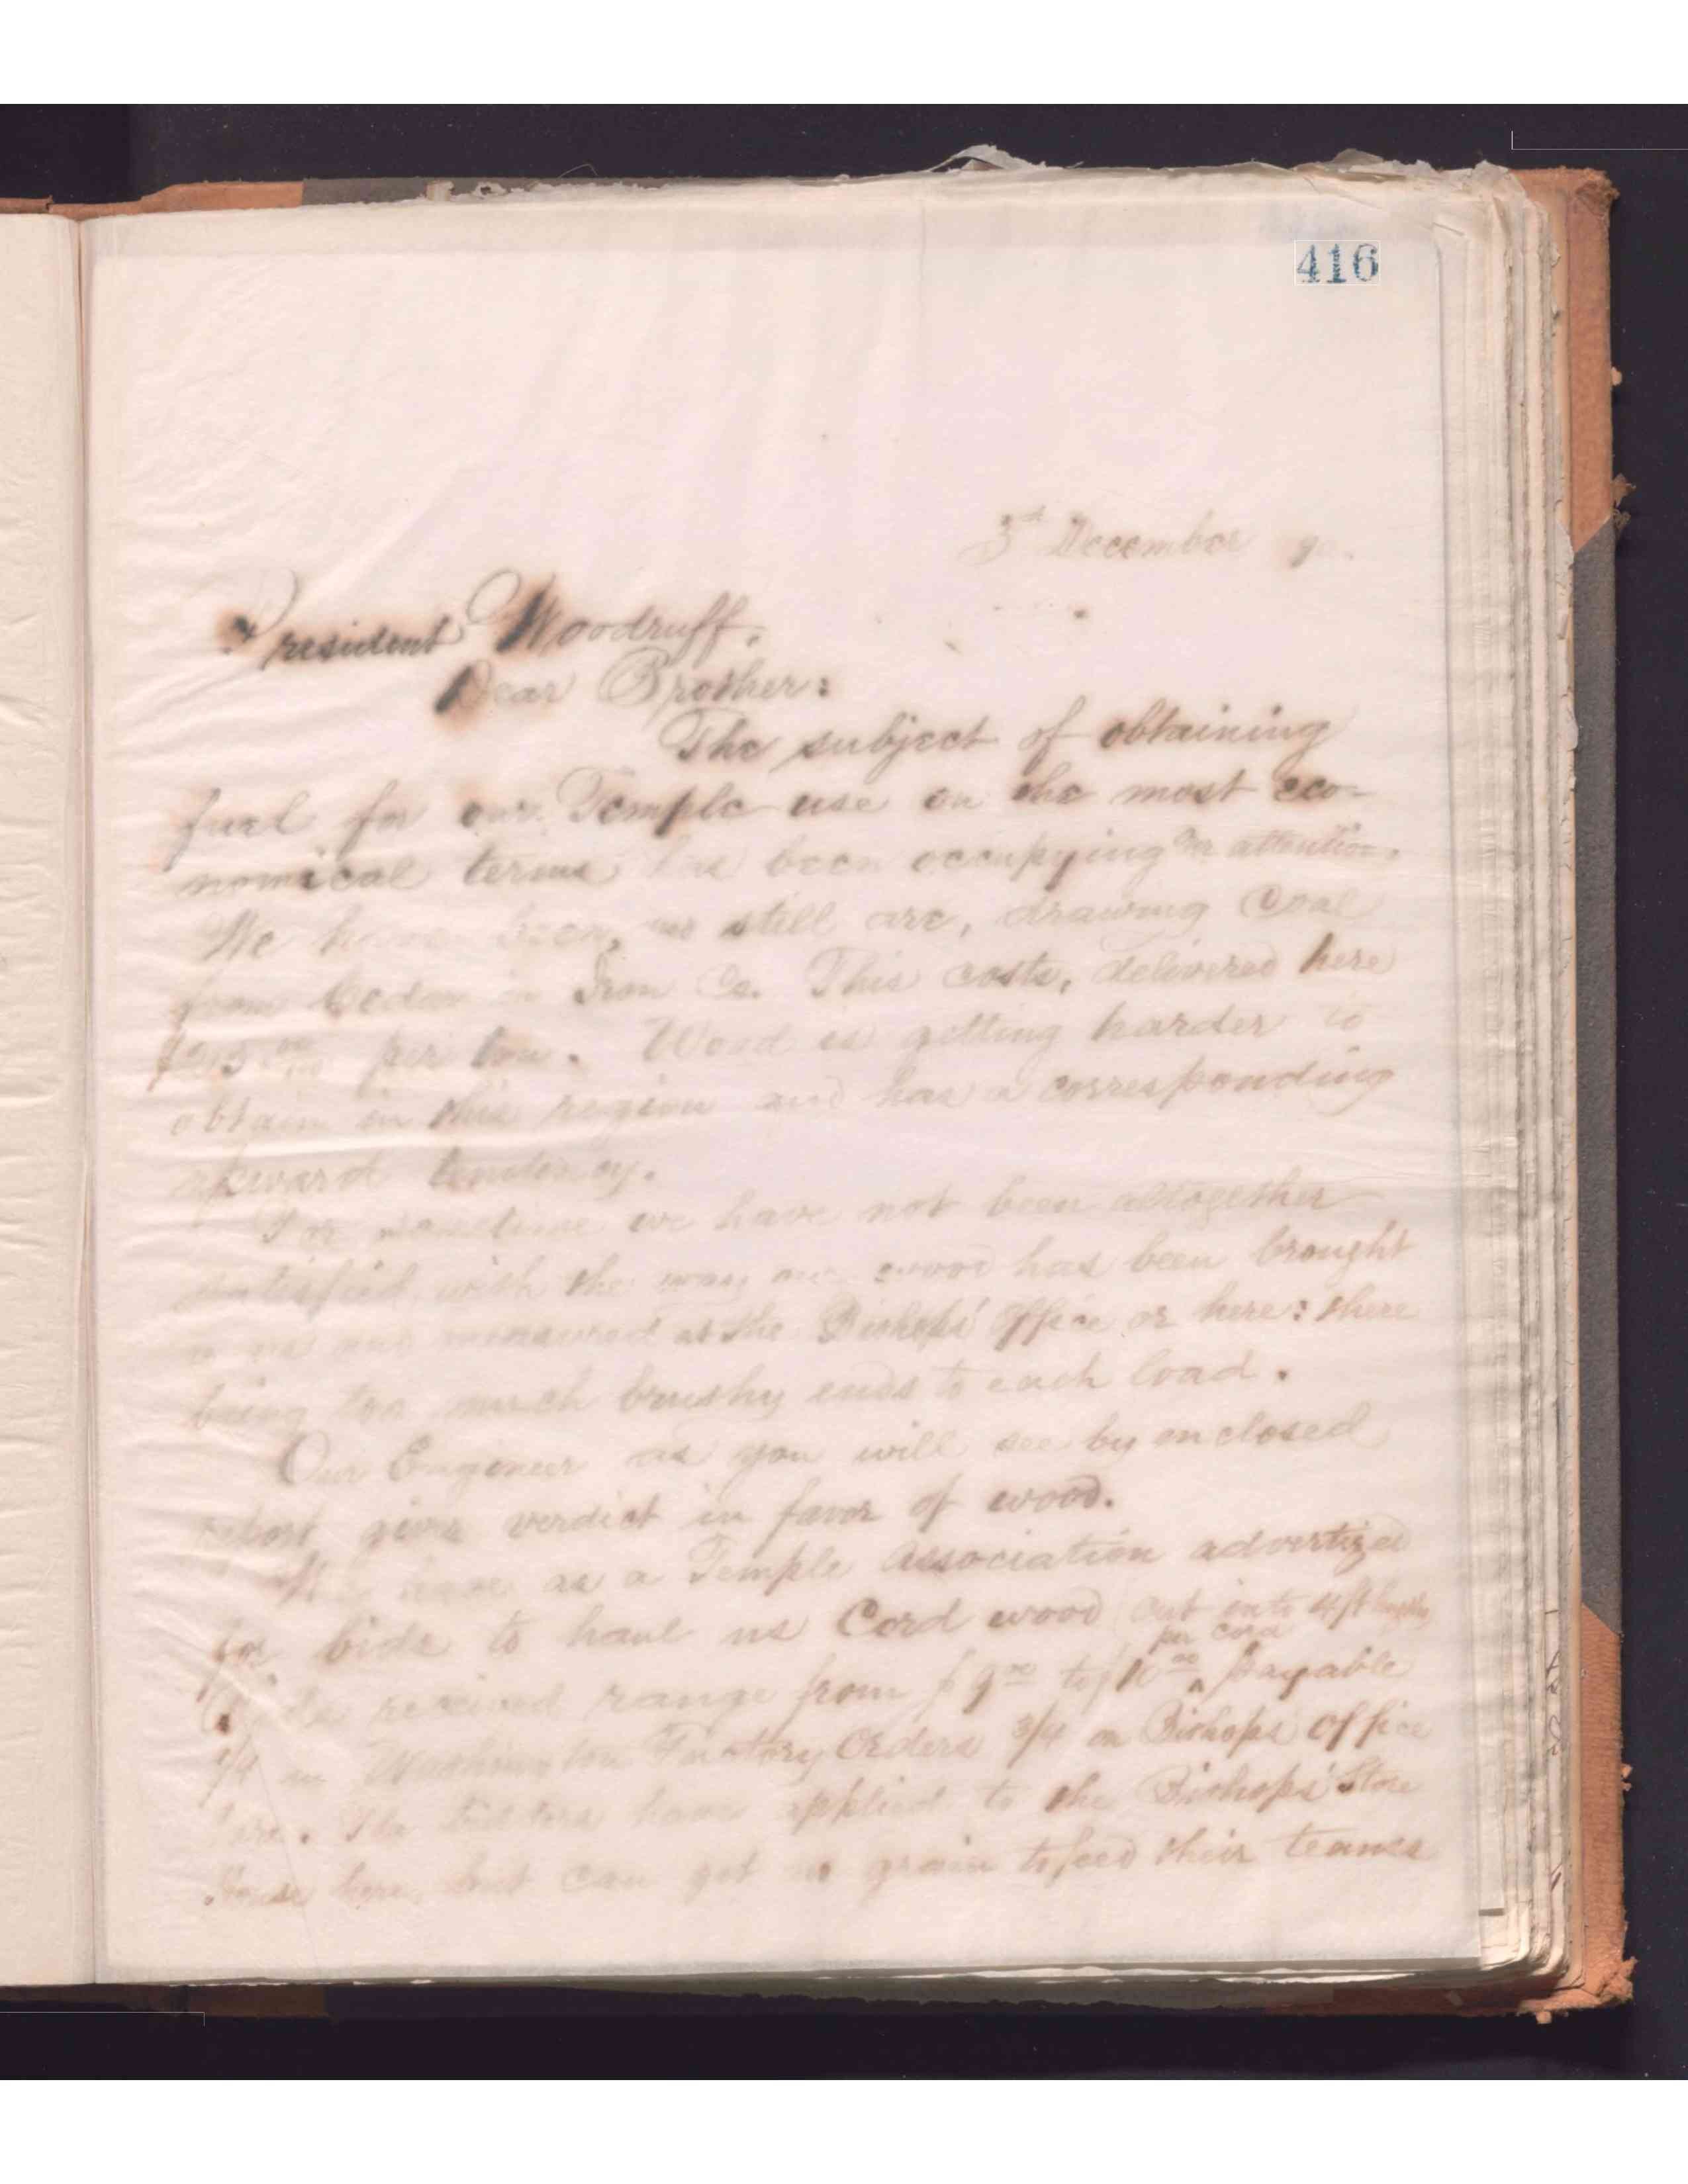 416
3rd December 90.
President Woodruff,
Dear Brother:
The subject of obtaining
fuel for our Temple use on the most eco-
nomical terms has been occupying our attention.
We have been, or still are, drawing Coal
from Cedar in Iron Co. This costs, delivered here
per ton. Wood is getting harder to
obtain in this region and has a corresponding
upward tendency.
For sometime we have not been altogether
satisfied with the way our wood has been brought
to us and measured at the Bishops' Office or here: there
being too much brushy ends to each load.
Our Engineer as you will see by enclosed
report gives verdict in favor of wood.
We have as a Temple Association advertized
for bids to haul us Cord wood cut into 4 ft lengths
Bids received range from $9 00 to $10 00 per cord payable
1/4 in Washington Factory Orders 3/4 on Bishops Office
here. The bidders have applied to the Bishops' Store
House here, but can get no grain to feed their teams